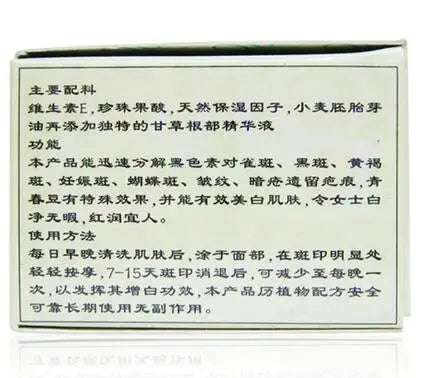 主要配料
维生素E,珍珠果酸,天然保湿因子,小麦胚胎芽
油再添加独特的甘草根部精华液
功能
本产品能迅速分解黑色素对雀斑、黑斑、黄褐
斑、妊娠斑、蝴蝶斑、皱纹、暗疮遗留疤痕,青
春豆有特殊效果,并能有效美白肌肤,令女士白
净无暇,红润宜人。
使用方法
每日早晚清洗肌肤后,涂于面部,在斑印明显处
轻轻按摩,7-15天斑印消退后,可减少至每晚一
次,以发挥其增白功效,本产品历植物配方安全
可靠长期使用无副作用。